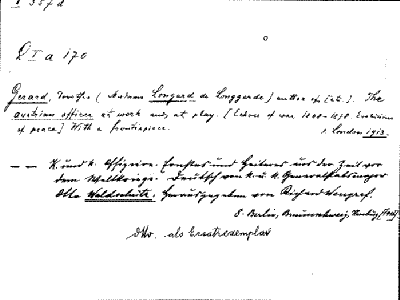 I 357d
QIa 170
Gerard, Dorothea (Madame Longard de Longgarde) author of [etc.]. The
austrian officer at work and at play. [Echoes of war 1800-1850. Evolution
of peace] With a frontispiece. 8. London 1913.
— — K. und k. Offiziere. Ernstes und Heiteres aus der Zeit vor
dem Weltkriege. Deutsch von k. u. k. Generalstabsmajor
Otto Waldschütz. Herausgegeben von Richard
8. Berlin, Braunschweig, Hamburg
Dtto. als Ersatzexemplar